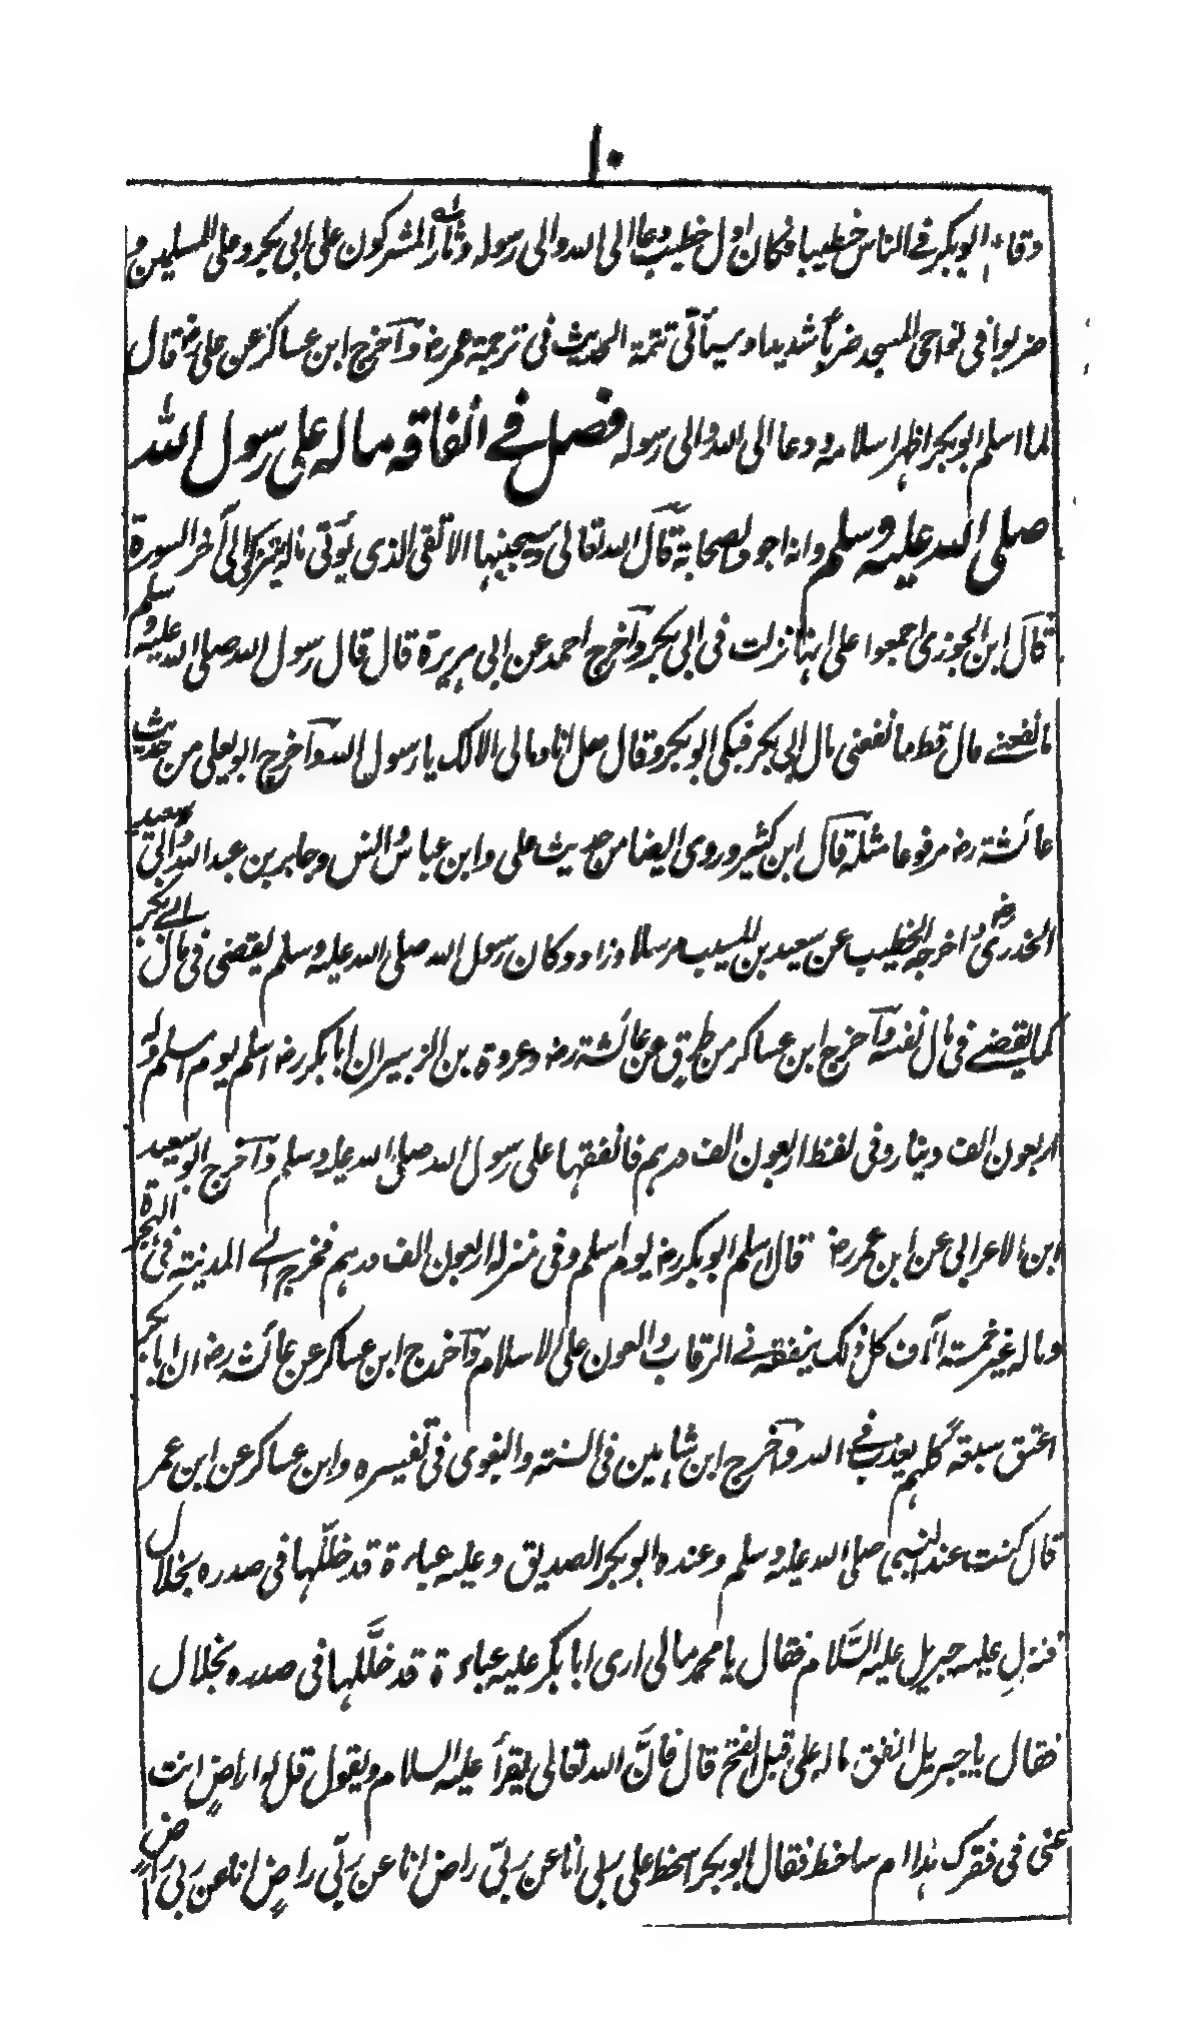 ١٠
وقام ابوبكر في الناس خطيبا فكان اول خطيب دعا الى الله والى رسوله وثار المشركون على ابي بكر وعلى المسلمين و
ضربوا فى نواحى المسجد ضرباً شديدا وسيأتى تتمة الحديث فى ترجمة عمر رض وآخرج ابن عساكر عن على رض قال
لما اسلم ابو بكر اظهر اسلامه ودعا الى الله والى رسوله فصل في انفاقه ماله على رسول الله
صلى الله عليه وسلم وانه اجود الصحابة قال الله تعالى وسيجنبها الاتقى الذى يؤتى ماله يتزكى الى آخر السورة
قال ابن الجوزى اجمعوا على انها نزلت فى ابى بكر وآخرج احمد عن ابى هريرة قال قال رسول الله صلى الله عليه وسلم
ما نفعني مال قط ما نفعنى مال ابى بكر فبكى ابو بكر وقال هل انا ومالى الا لك يا رسول الله وآخرج ابو يعلى من حديث
عائشة رض مرفوعا مثله قال ابن كثير وروى ايضا من حديث على وابن عباس وانس وجابر بن عبد الله وابى سعيد
الخدرى رض و اخرجه الخطيب عن سعيد بن المسيب مرسلا وزاد وكان رسول الله صلى الله عليه وسلم يقضى فى مال ابي بكر
كما يقضے فى مال نفسه وآخرج ابن عساكر من طرق عن عائشة رض وعروة بن الزبير ان ابا بكر رض اسلم يوم اسلم وله
اربعون الف دينار وفى لفظ اربعون الف درهم فانفقها على رسول الله صلى الله عليه وسلم وآخرج ابو سعيد
ابن الاعرابى عن ابن عمر رض قال اسلم ابو بكر رض يوم اسلم وفى منزله اربعون الف درهم فخرج الے المدينة فى الهجرة
وماله غير خمسة آلاف كل ذلك ينفقه في الرقاب والعون على الاسلام وآخرج ابن عساكر عن عائشة رض ان ابا بكر
اعتق سبعة كلهم يعذب في الله وآخرج ابن شاهين فى السنة والبغوى فى تفسيره وابن عساكر عن ابن عمر
قال كنت عند النبى صلى الله عليه وسلم وعنده ابو بكر الصديق وعليه عباءة قد خللها فى صدره بخلال
فنزل عليه جبريل عليه السلام فقال يا محمد مالى ارى ابا بكر عليه عباءة قد خللها فى صدره بخلال
فقال يا جبريل انفق ماله على قبل الفتح قال فان الله تعالى يقرأ عليه السلام ويقول قل له اراضٍ انت
عنى فى فقرك هذا ام ساخط فقال ابو بكر اسخط على ربى انا عن ربى راض انا عن ربى راضٍ انا عن ربى راضٍ